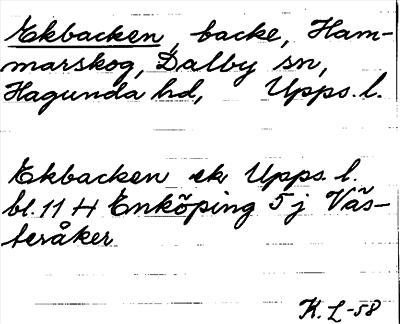 Ekbacken, backe, Ham-
marskog, Dalby sn,
Hagunda hd, Upps. l.
Ekbacken ek Upps. l.
bl. 11 H Enköping 5 j Väs-
teråker
K. L -58